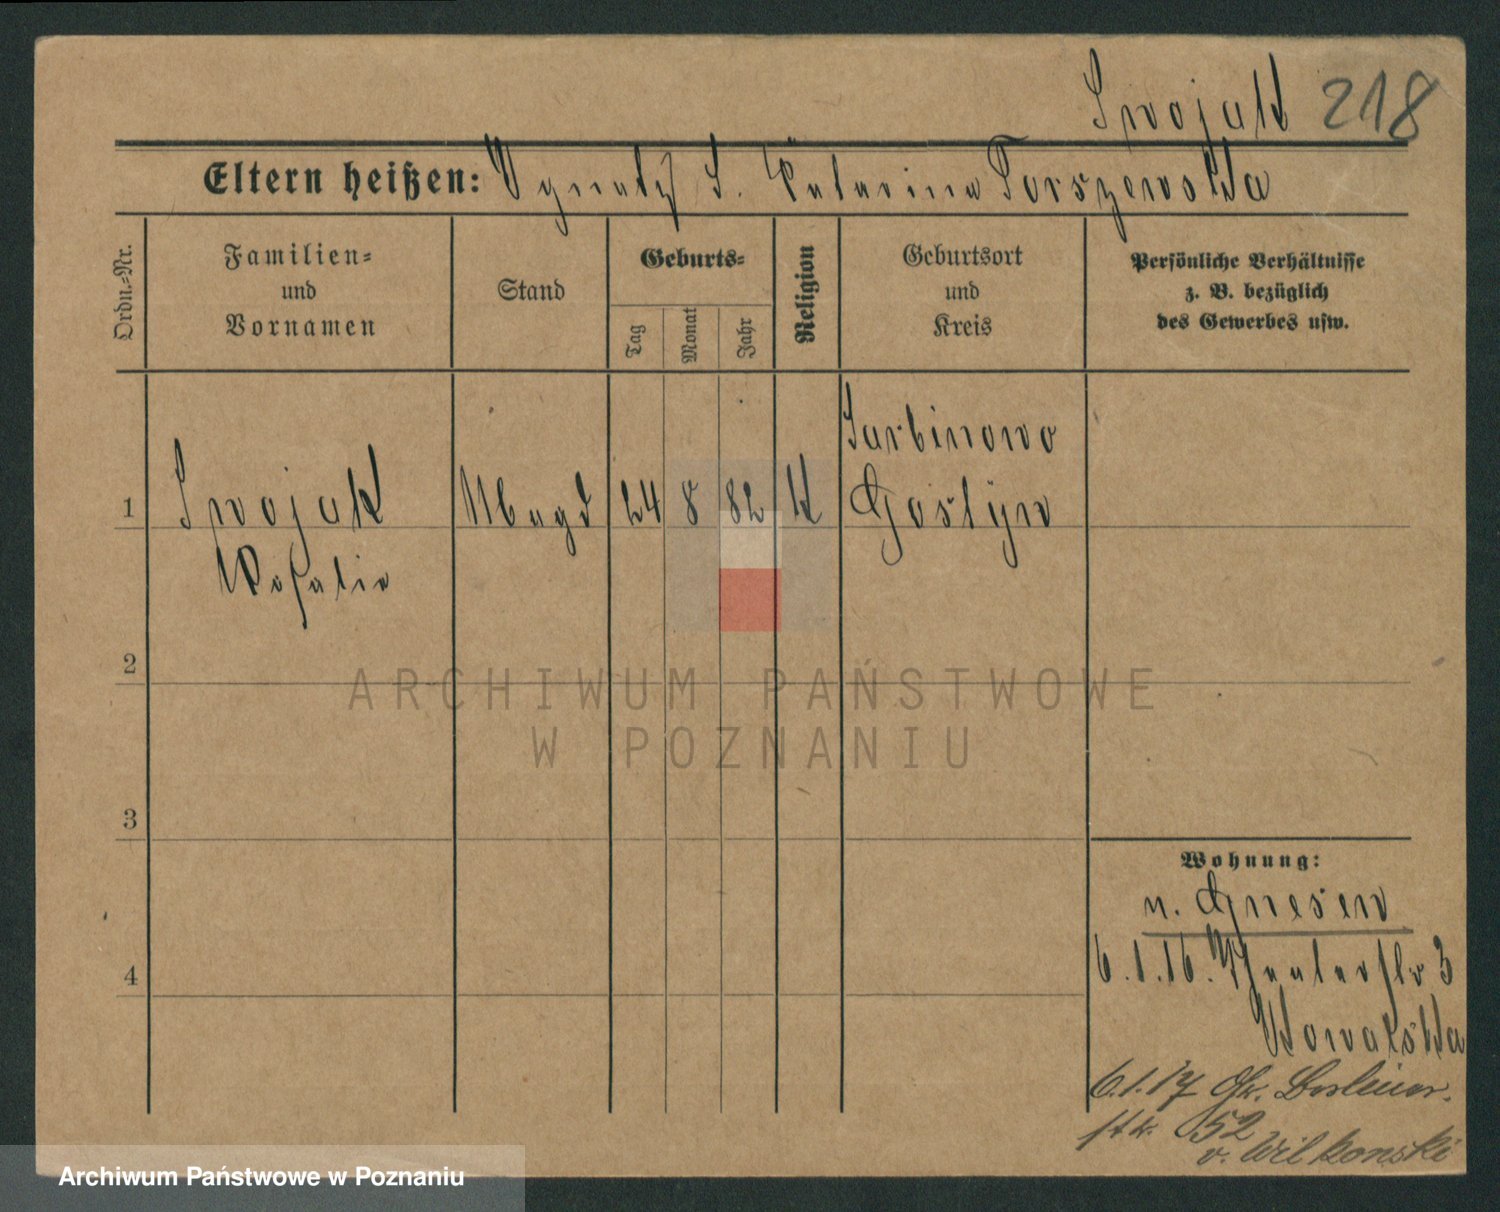 Swojak 218
Eltern heißen: Ygnatz S. Katarina Torszewska
Ordn.-Nr.
Familien-
und
Vornamen
Stand
Geburts-
Tag
Monat
Jahr
Religion
Geburtsort
und
Kreis
Persönliche Verhältnisse
z. B. bezüglich
des Gewerbes usw.
Sarbinowo
1 Swojak Magd 24 8 82 K Gostyn
Rosalie
2
ARCHIWUM PAŃSTWOWE
W POZNANIU
3
Wohnung:
n. Gnesen
4
6.1.16. Theaterstr 3
Kowalska
6.1.17 Gr. Berliner-
str. 52
v. Wilkonski
Archiwum Państwowe w Poznaniu